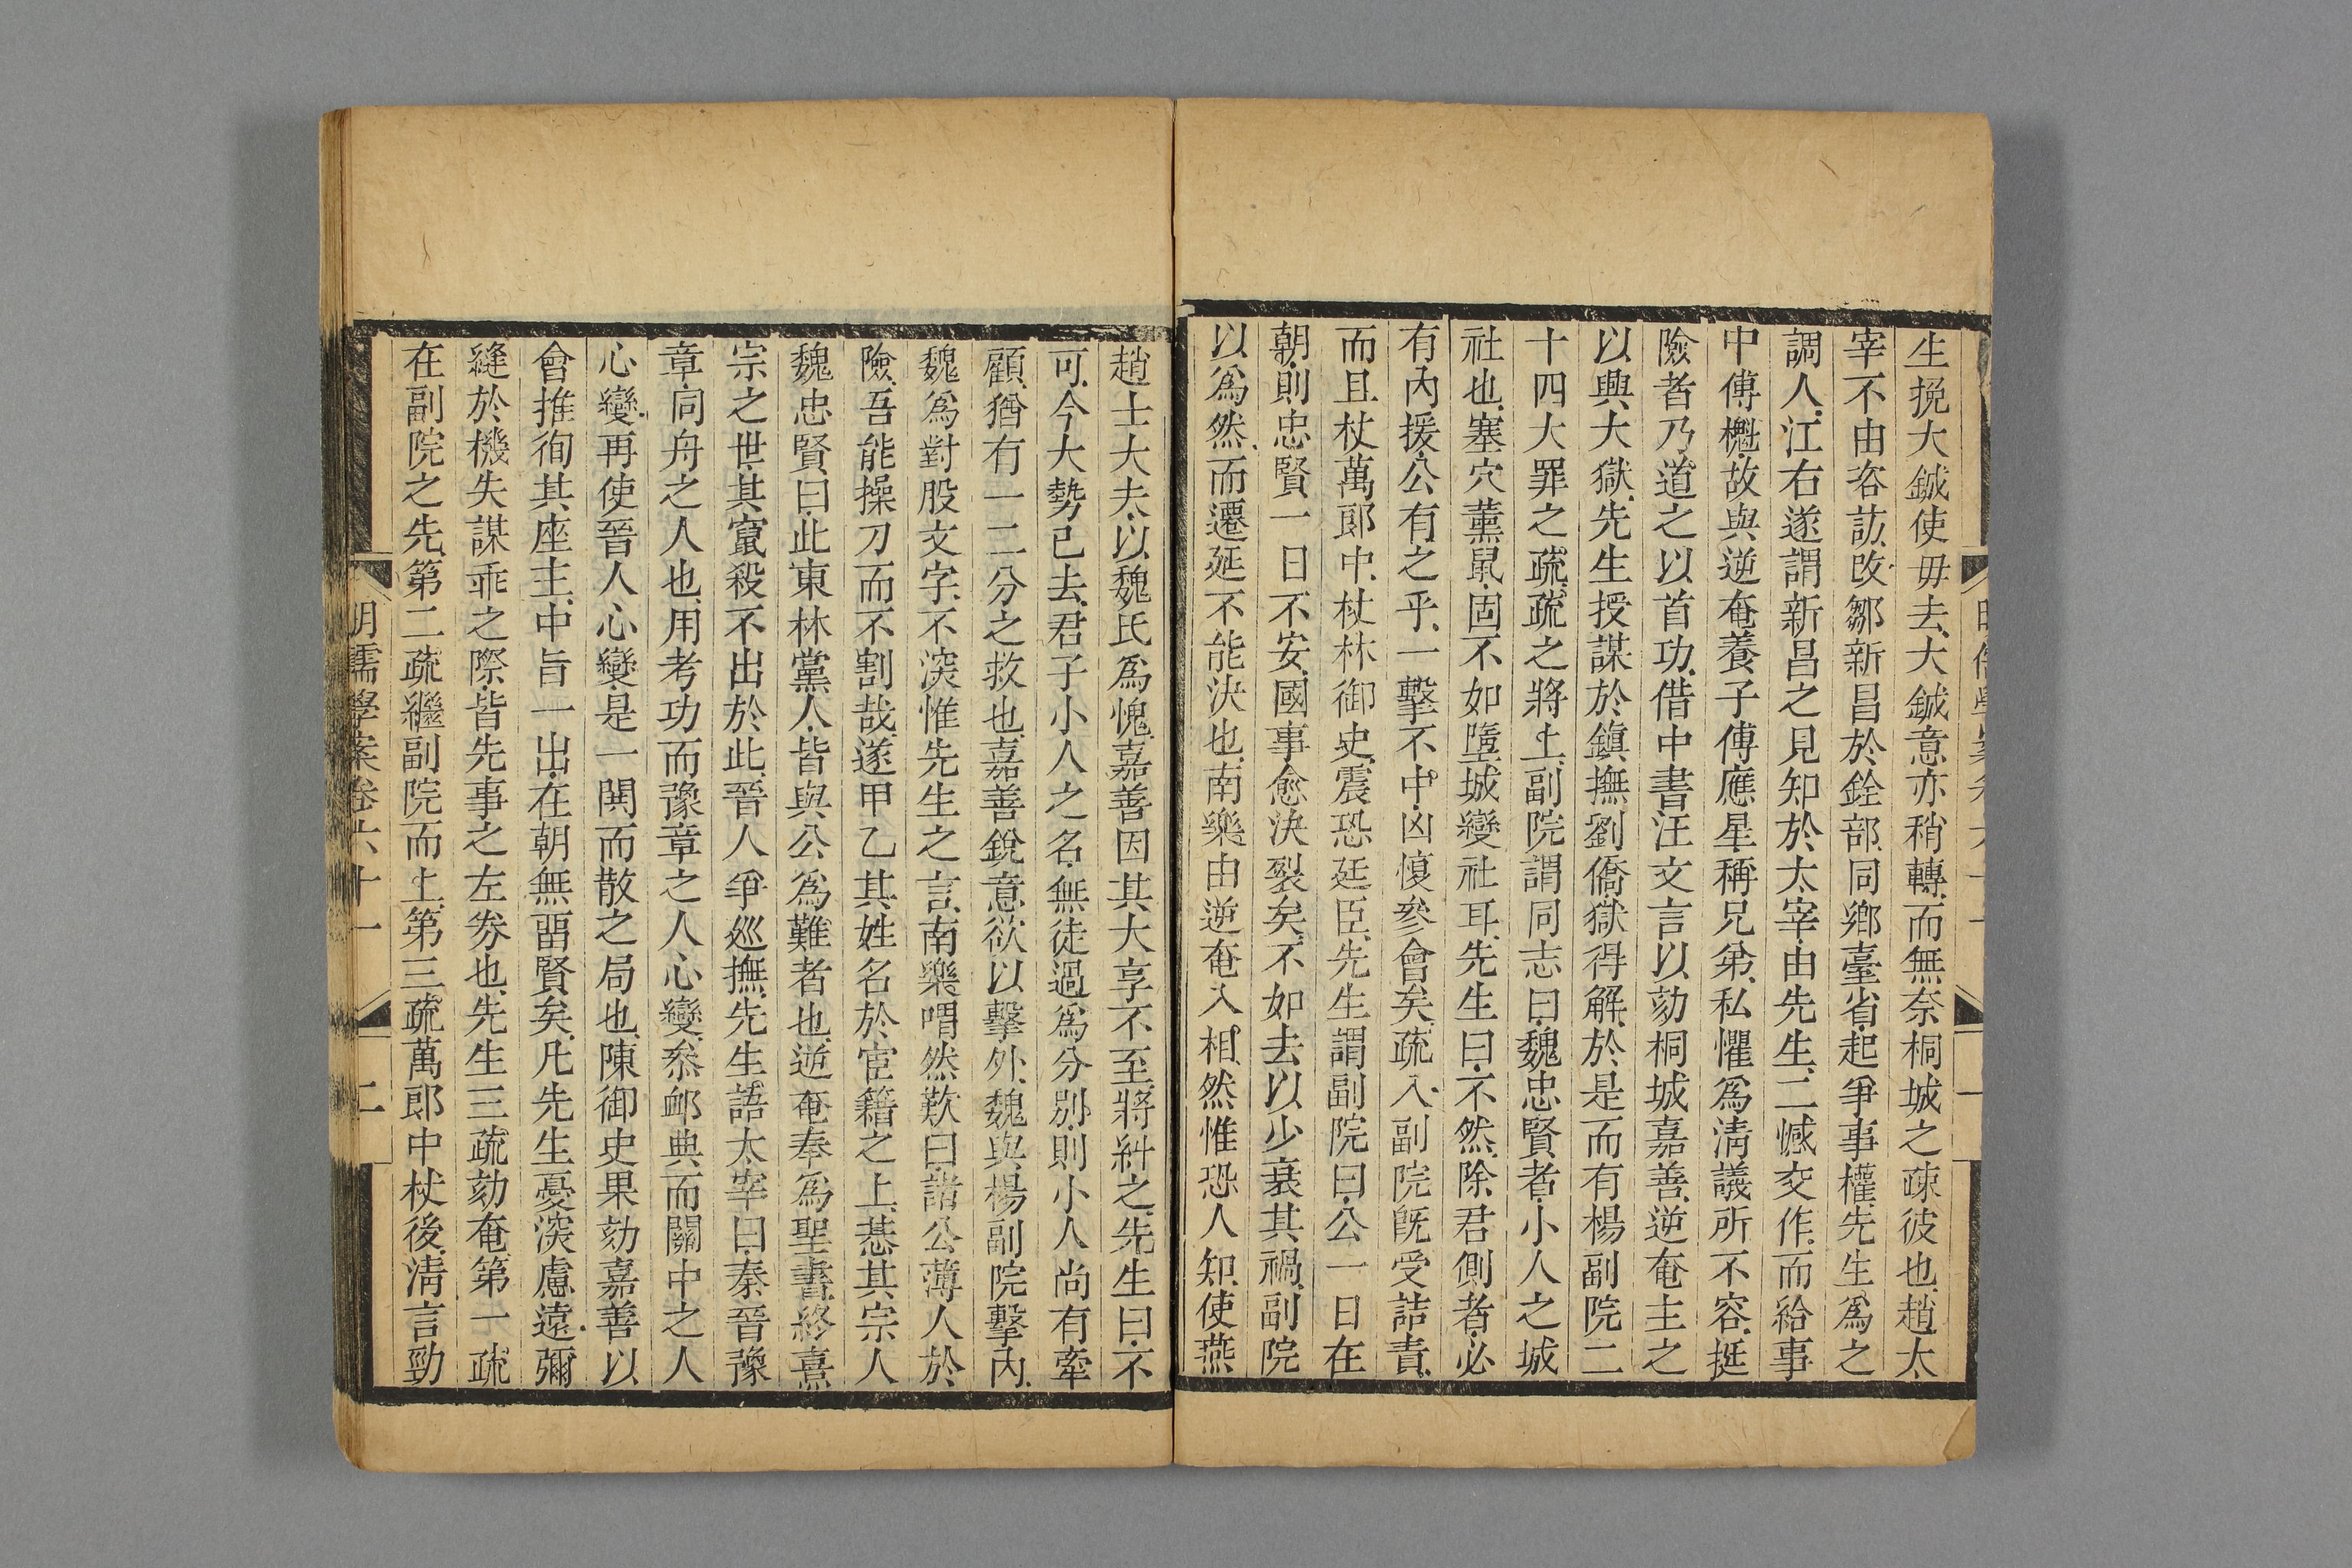 生挽大鋮使毋去大鋮意亦稍轉而無奈桐城之疎彼也趙太
宰不由咨訪改鄒新昌於銓部同鄉臺省起爭事權先生爲之
調人江右遂謂新昌之見知於太宰由先生二憾交作而給事
中傅櫆故與逆奄養子傅應星稱兄弟私懼爲淸議所不容挺
險者乃道之以首功借中書汪文言以劾桐城嘉善逆奄主之
以興大獄先生授謀於鎮撫劉僑獄得解於是而有楊副院二
十四大罪之疏疏之將上副院謂同志曰魏忠賢者小人之城
社也塞穴薰鼠固不如墮城變社耳先生曰不然除君側者必
有內援公有之乎一擊不中凶愎參會矣疏入副院旣受詰責
而且杖萬郎中杖林御史震恐廷臣先生謂副院曰公一日在
朝則忠賢一日不安國事愈決裂矣不如去以少衰其禍副院
以爲然而遷延不能決也南樂由逆奄入相然惟恐人知使燕
趙士大夫以魏氏爲愧嘉善因其大享不至將糾之先生曰不
可今大勢已去君子小人之名無徒過爲分別則小人尚有牽
顧猶有一二分之救也嘉善銳意欲以擊外魏與楊副院擊內
魏爲對股文字不深惟先生之言南樂喟然歎曰諸公薄人於
險吾能操刀而不割哉遂甲乙其姓名於宦籍之上惎其宗人
魏忠賢曰此東林黨人皆與公爲難者也逆奄奉爲聖書終熹
宗之世其竄殺不出於此晉人爭巡撫先生語太宰曰秦晉豫
章同舟之人也用考功而豫章之人心變叅邮典而關中之人
心變再使晉人心變是一鬨而散之局也陳御史果劾嘉善以
會推徇其座主中旨一出在朝無畱賢矣凡先生憂深慮遠彌
縫於機失謀乖之際皆先事之左券也先生三疏劾奄第一疏
在副院之先第二疏繼副院而上第三疏萬郎中杖後淸言勁
明儒學案卷六十一
二